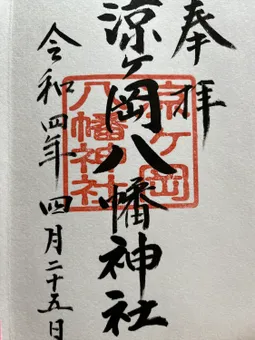 奉拝
涼ケ岡八幡神社
涼ケ岡
八幡神社
令和四年四月二十五日